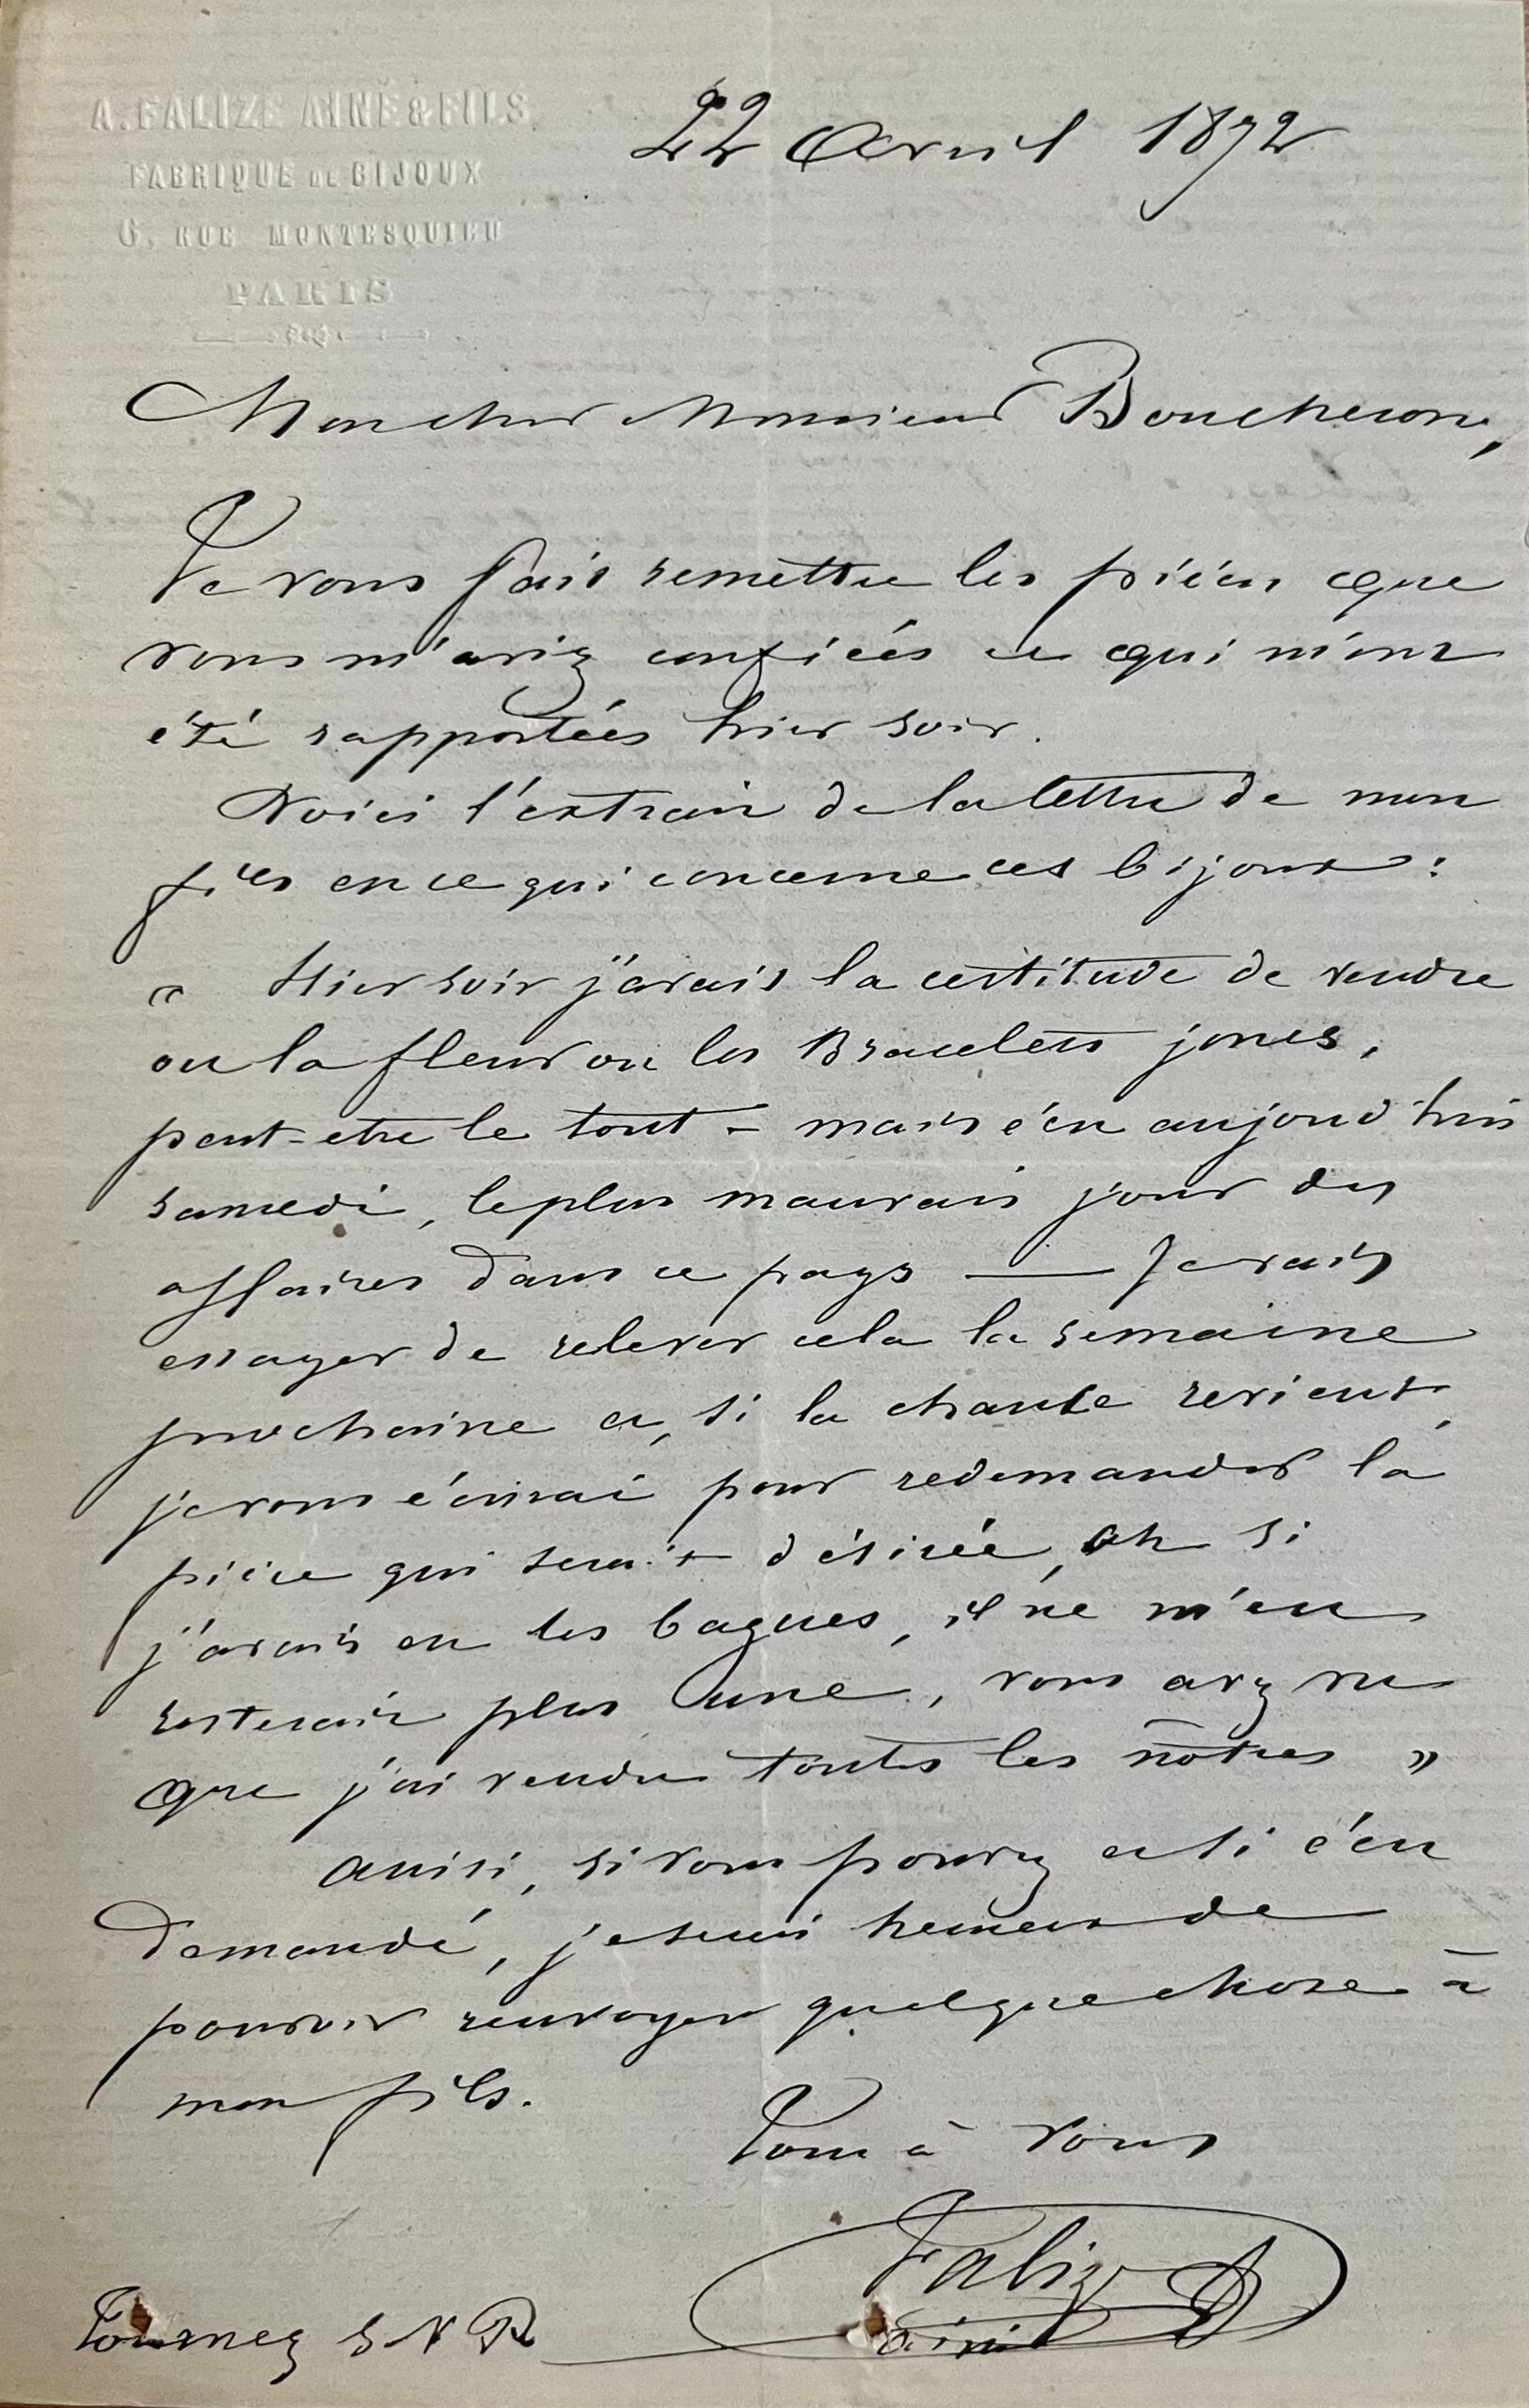 A. FALIZE AINÉ & FILS
FABRIQUE DE BIJOUX
6, RUE MONTESQUIEU
PARIS
22 Avril 1872
Mon cher Monsieur Boucheron,
Je vous fais remettre les pièces que
vous m'aviez confiées et qui m'ont
été rapportées hier soir.
Voici l'extrait de la lettre de mon
fils en ce qui concerne ces bijoux :
« Hier soir j'avais la certitude de vendre
ou la fleur ou les Bracelets joncs,
peut-etre le tout - mais c'est aujourd'hui
samedi, le plus mauvais jour des
affaires dans ce pays — Je vais
essayer de relever cela la semaine
prochaine et, si la chance revient,
je vous écrirai pour redemander la
pièce qui serait désirée, ah si
j'avais eu les bagues, il ne m'en
resterait plus une, vous avez vu
que j'ai vendu toutes les nôtres »
Ainsi, si vous pouvez et si c'est
demandé, je serai heureux de
pouvoir renvoyer quelque chose à
mon fils.
Tout à vous
Falize
aîné
Tournez S V P